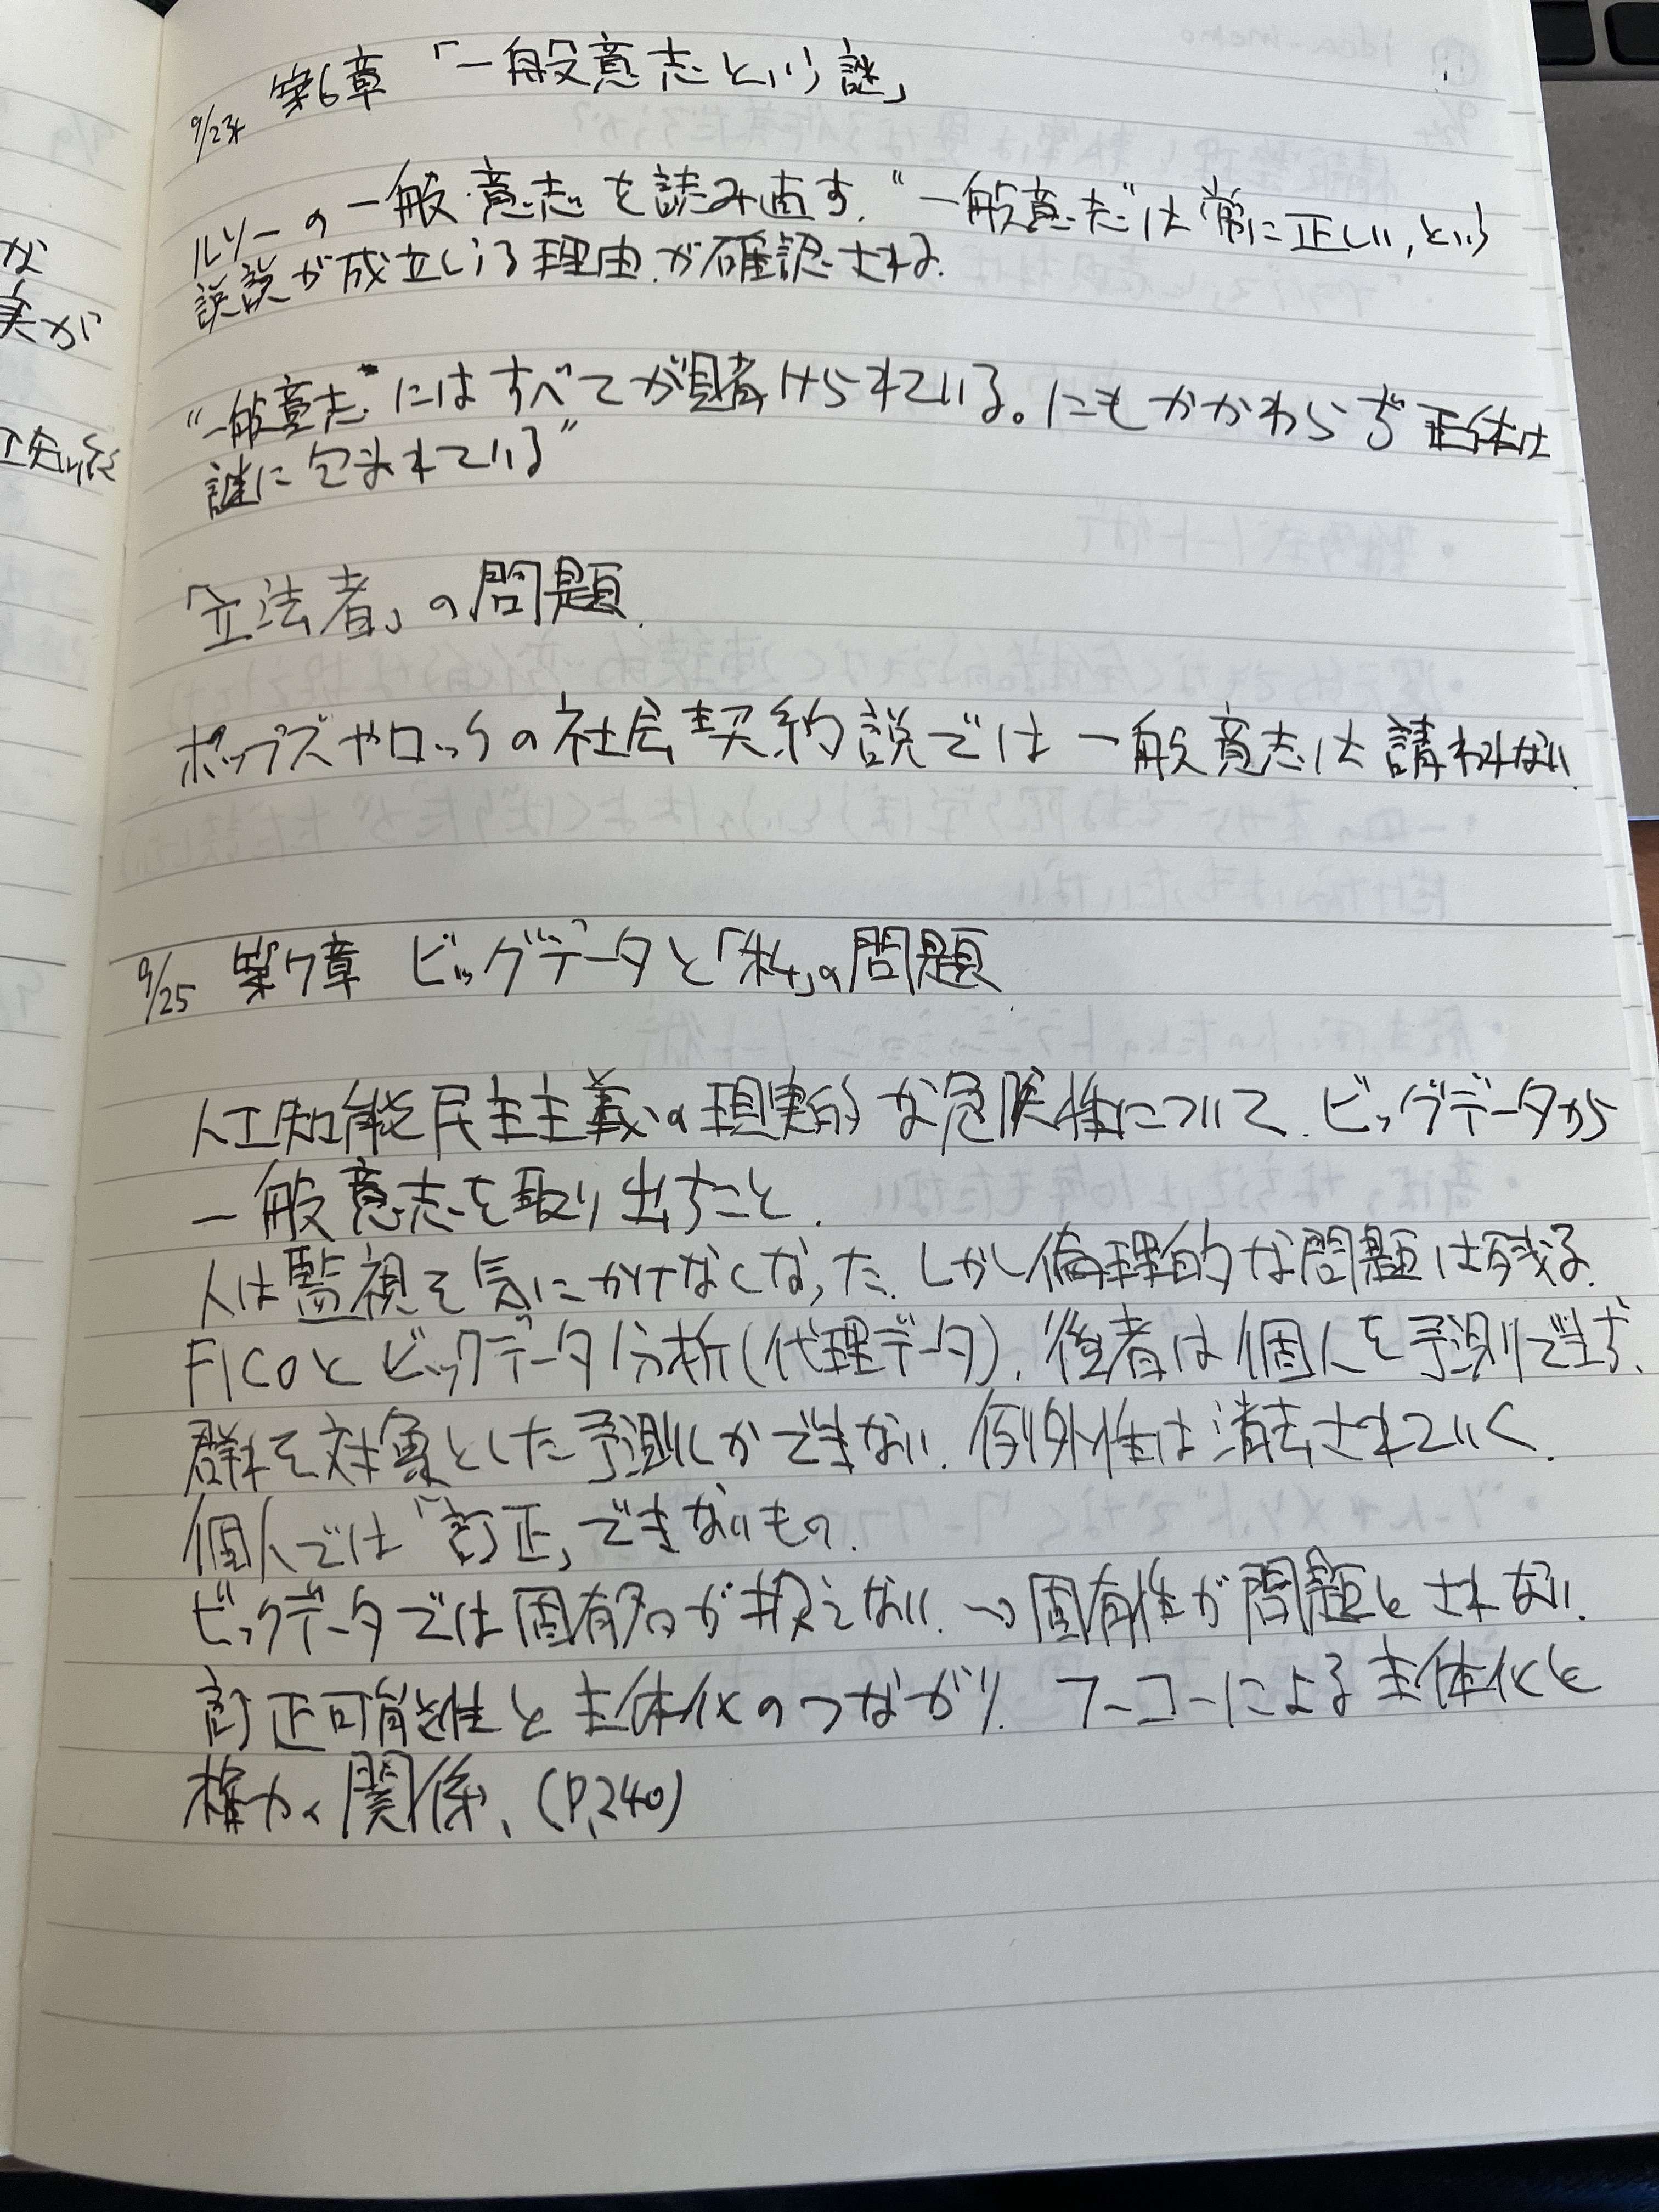 9/24 第6章「一般意志という謎」
ルソーの一般意志を読み直す. "一般意志"は常に正しい, という
誤読が成立しうる理由が確認される.
"一般意志"にはすべてが賭けられている。にもかかわらず 正体は
謎に包まれている"
「立法者」の問題.
ホッブズやロックの社会契約説では 一般意志は 請われない.
9/25 第7章 ビッグデータと「私」の問題
人工知能民主主義の現実的な危険性について. ビッグデータから
一般意志を取り出すこと.
人は監視を気にかけなくなった. しかし倫理的な問題は残る.
FICOと ビッグデータ分析(代理データ). 後者は個人を予測できず、
群れを対象とした予測しかできない. 例外性は消去されていく.
個人では「訂正」できないもの.
ビッグデータでは固有名が扱えない. → 固有性が問題とされない.
訂正可能性と主体化のつながり. フーコーによる主体化と
権力の関係、(P,240)
な
実が